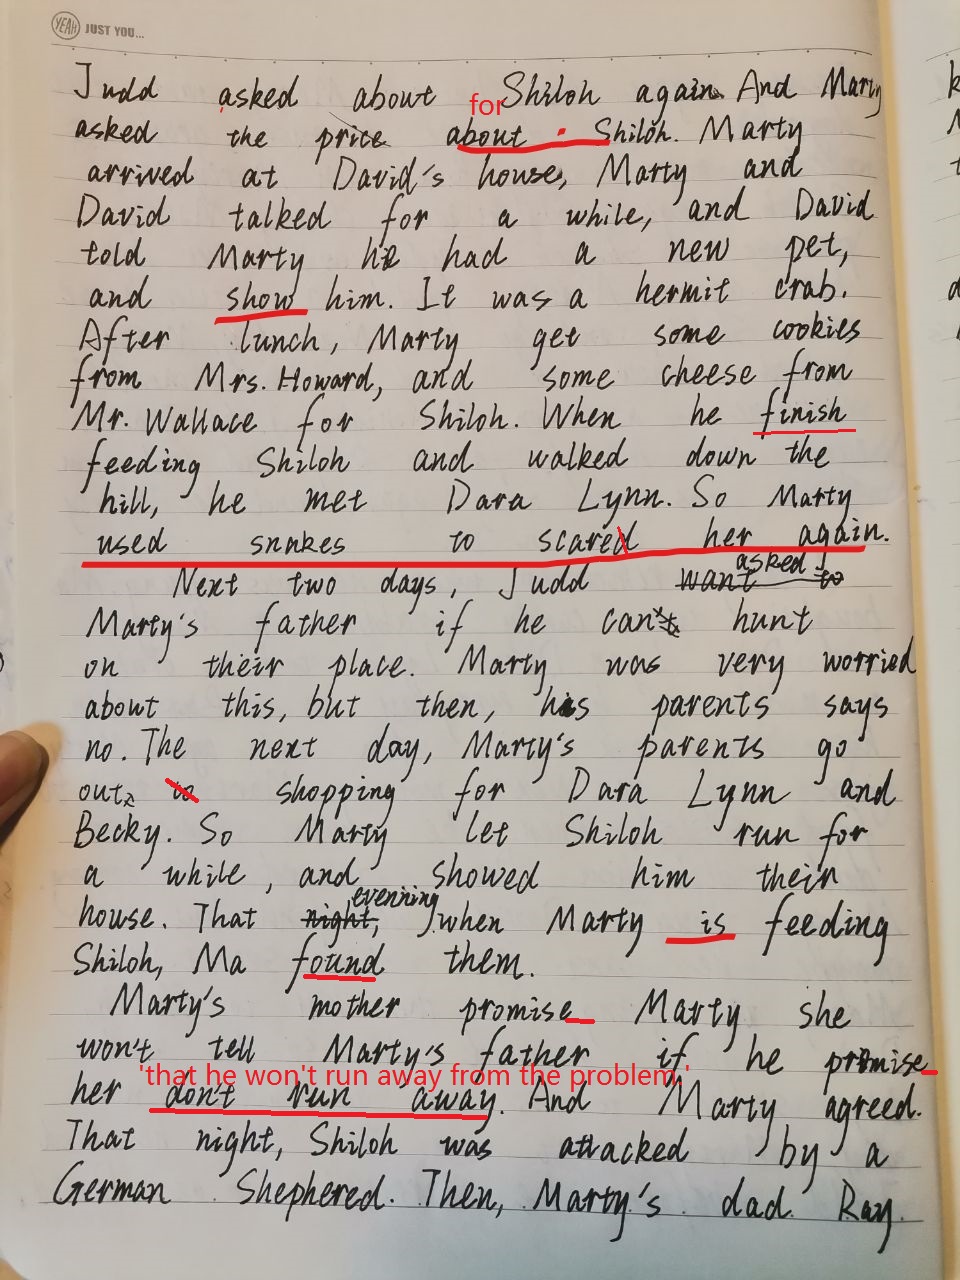 YEAH JUST YOU...
Judd asked about Shiloh again. And Marty
for
asked the price about Shiloh. Marty
arrived at David's house, Marty and
David talked for a while, and David
told Marty he had a new pet,
and show him. It was a hermit crab.
After lunch, Marty get some cookies
from Mrs. Howard, and some cheese from
Mr. Wallace for Shiloh. When he finish
feeding Shiloh and walked down the
hill, he met Dara Lynn. So Marty
used snakes to scared her again.
asked
Next two days, Judd want to
Marty's father if he can't hunt
on their place. Marty was very worried
about this, but then, his parents says
no. The next day, Marty's parents go
out to shopping for Dara Lynn and
Becky. So Marty let Shiloh run for
a while, and showed him their
evenning
house. That night, when Marty is feeding
Shiloh, Ma found them.
Marty's mother promise Marty she
won't tell Marty's father if he promise
'that he won't run away from the problem.'
her don't run away. And Marty agreed.
That night, Shiloh was attacked by a
German Shephered. Then, Marty's dad Ray